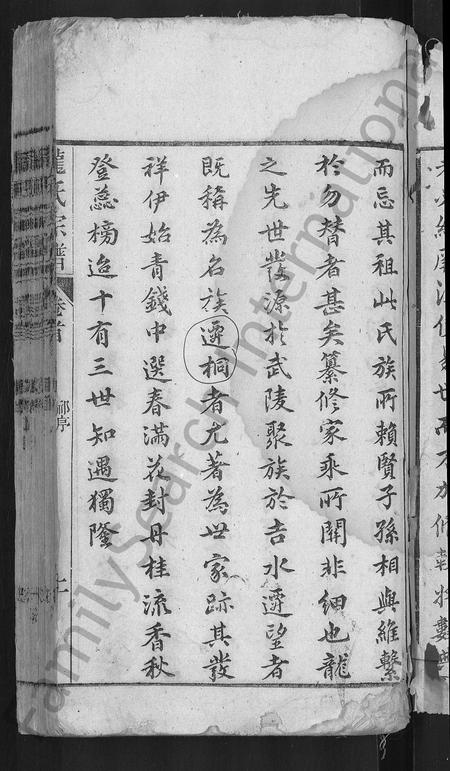 而忘其祖此氏族所賴賢子孫相與維繫
於勿替者甚矣纂修家乘所關非細也龍
之先世發源於武陵聚族於吉水遷望者
既稱為名族遷桐者尤著為世家跡其發
祥伊始青錢中選春滿花封丹桂流香秋
登蕊榜迨十有三世知遇獨隆
龍氏宗譜
卷首
邱序
FamilySearch International